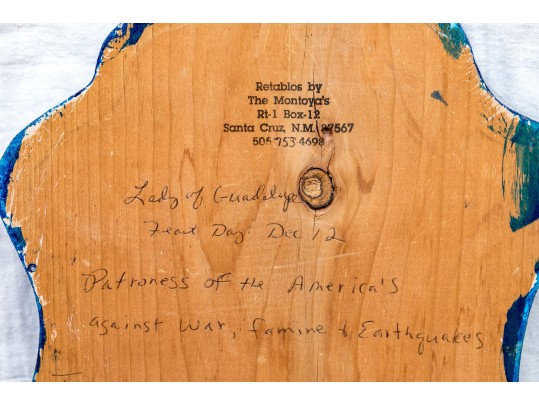 Retablos by
The Montoya's
Rt-1 Box-12
Santa Cruz, N.M. 87567
505 753 4698
Lady of Guadalupe
Feast Day: Dec 12
Patroness of the America's
against War, famine & Earthquakes